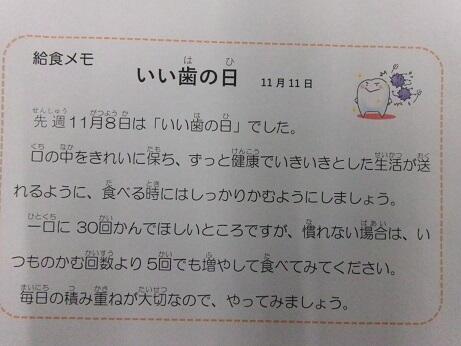 給食メモ
いい歯の日 11月11日
先週11月8日は「いい歯の日」でした。
口の中をきれいに保ち、ずっと健康でいきいきとした生活が送
れるように、食べる時にはしっかりかむようにしましょう。
一口に 30回かんでほしいところですが、慣れない場合は、い
つものかむ回数より5回でも増やして食べてみてください。
毎日の積み重ねが大切なので、やってみましょう。